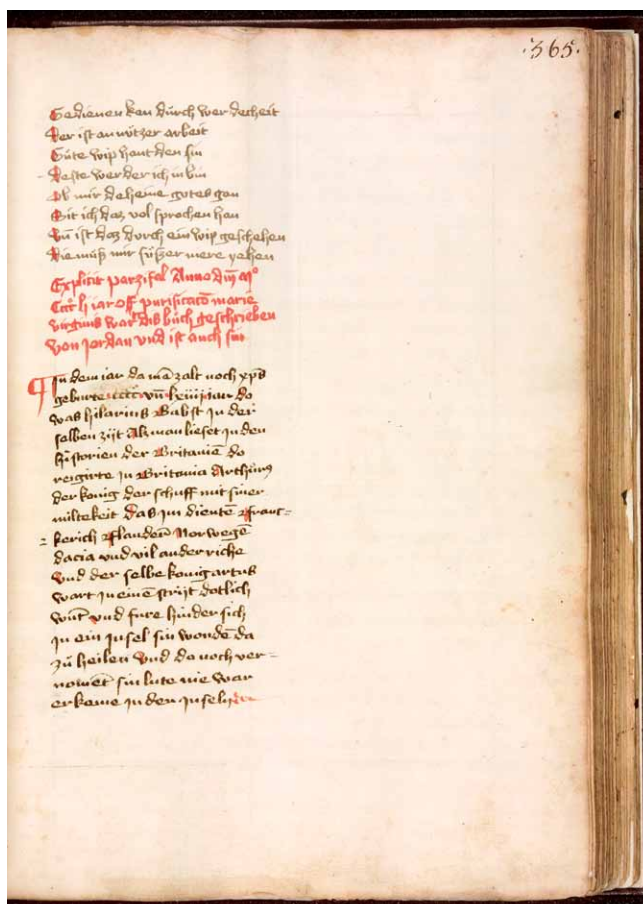 .365.
Gedienen kan durch werdecheit
Der ist an nützer arbeit
Güte wip hant den sin
Deste werder ich in bin
Ob mir deheine gotes gan
Sit ich daz vol sprochen han
Vn̄ ist daz durch ein wip geschehen
Die müß mir süszer mere yehen
Explicit parzifal Anno dm̄ Mº
CCCC li iar off purificatōn marie
virginis wart dis büch geschrieben
von Jordan vnd ist auch sin
¶ In dem iar da mā zalt noch xp̄s
geburte cccc vn̄ lxiiij iar do
was hilarius Babst In der
selben zijt Alz man lieset in den
historien der Britanien̄ do
reigirte in Britania Arthür9
der konig der schuff mit siner
miltekeit Das im dientē ffranc-
kerich fflandern̄ Norwegē
dacia vnd vil ander riche
Vnd der selbe konig artus
wart In einē strijt dotlich
wūt vnd fure hinder sich
In ein Insel sin wondē da
zü heilen Vnd do noch ver-
nomēt sin lute nie war
er keme In der Inselyn